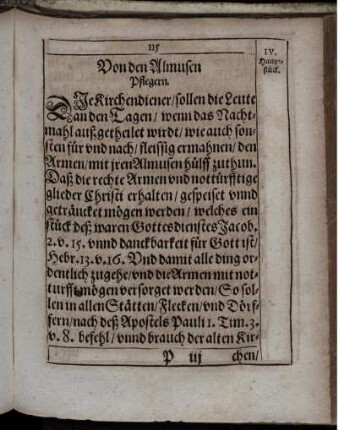 115
IV.
Haupt-
stück.
Von den Almusen
Pflegern.
DJe Kirchendiener/ sollen die Leute
an den Tagen/ wenn das Nacht-
mahl außgetheilet wirdt/ wie auch son-
sten für vnd nach/ fleissig ermahnen/ den
Armen/ mit jren Almusen hülff zuthun.
Daß die rechte Armen vnd notturfftige
glieder Christi erhalten/ gespeiset vnnd
geträncket mögen werden/ welches ein
stück deß waren Gottesdienstes Jacob.
2. v. 15. vnnd danckbarkeit für Gott ist/
Hebr. 13. v. 16. Vnd damit alle ding or-
dentlich zugehe/ vnd die Armen mit not-
turfft mögen versorget werden/ So sol-
len in allen Stätten/ Flecken/ vnd Dörf-
fern/ nach deß Apostels Pauli 1. Tim. 3.
v. 8. befehl/ vnnd brauch der alten Kir-
P iij chen/